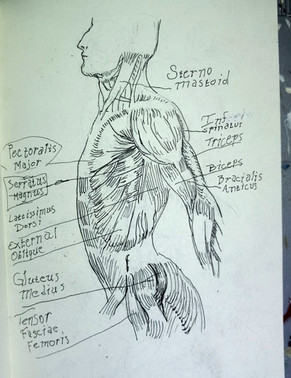 Sterno
mastoid
Inf
spinatus
Triceps
Biceps
Bracialis
Anticus
Pectoralis
Major
Serratus
Magnus
Latissimus
Dorsi
External
Oblique
Gluteus
Medius
Tensor
Fasciae
Femoris